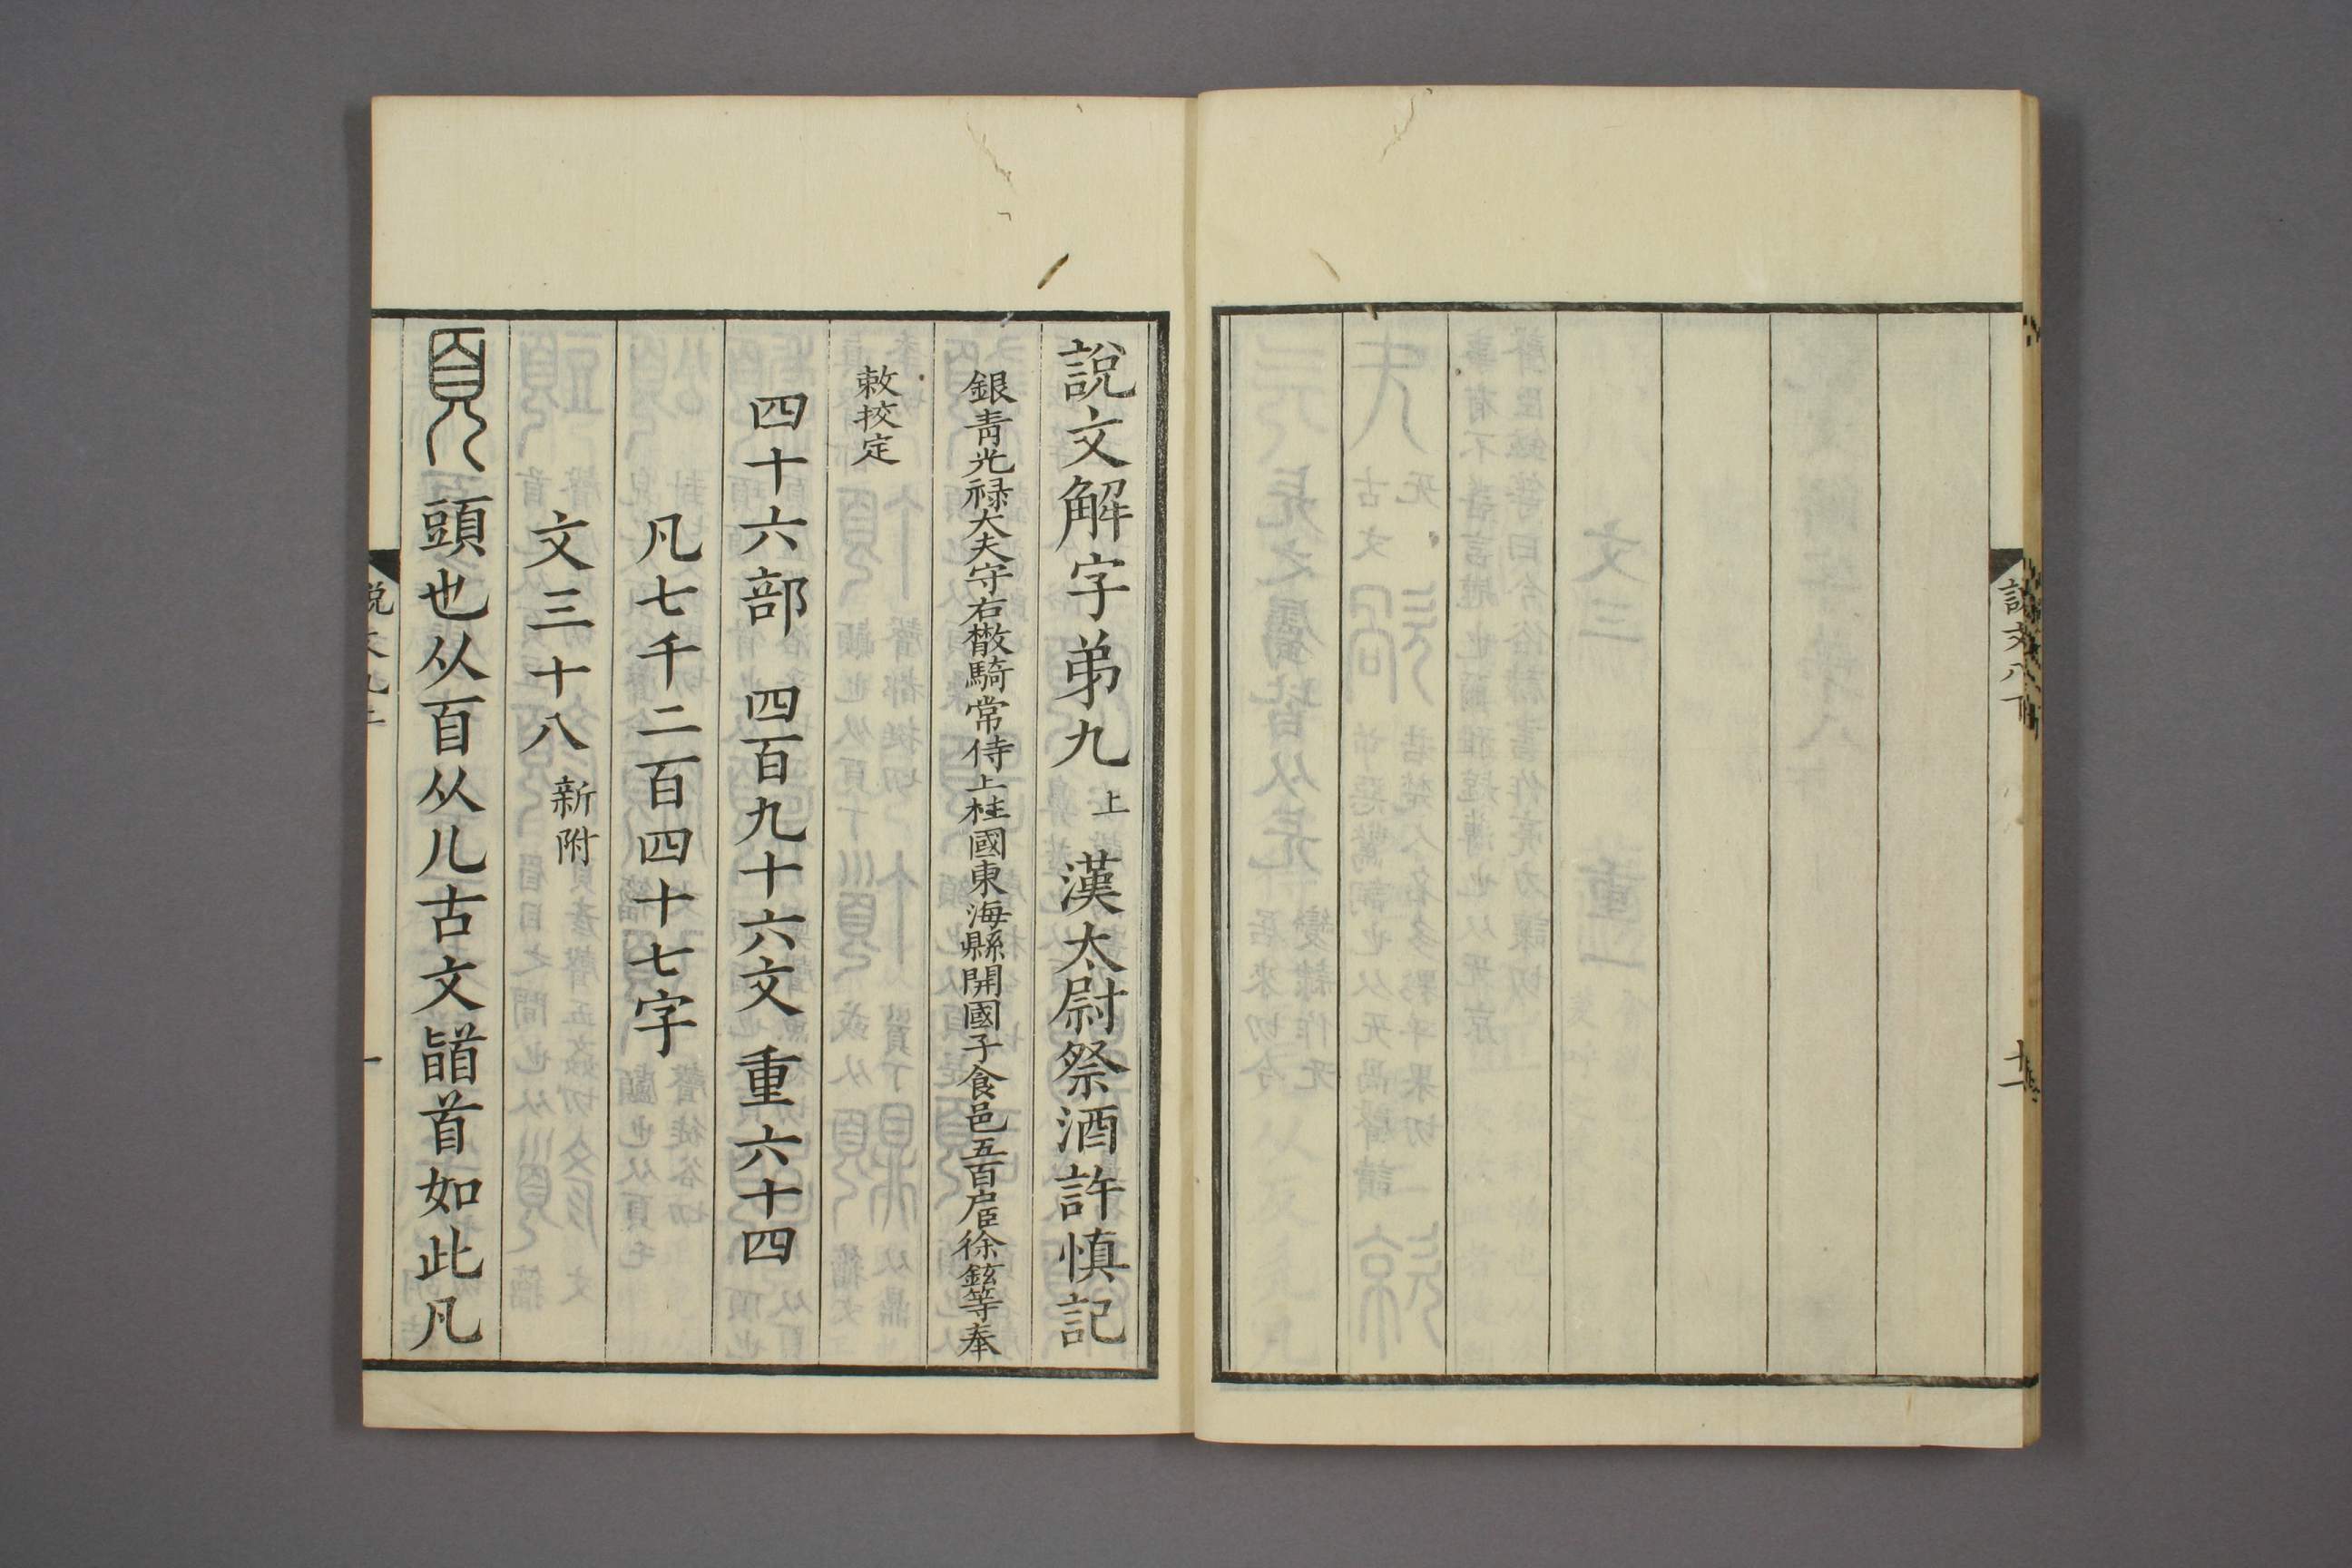 説文八下
十一
説文解字弟九上 漢太尉祭酒許慎記
銀青光禄大夫守右散騎常侍上柱國東海縣開國子食邑五百户臣徐鉉等奉
敕挍定
四十六部 四百九十六文 重六十四
凡七千二百四十七字
文三十八新附
頁頭也从𦣻从儿古文䭫首如此凡
説文九上
一